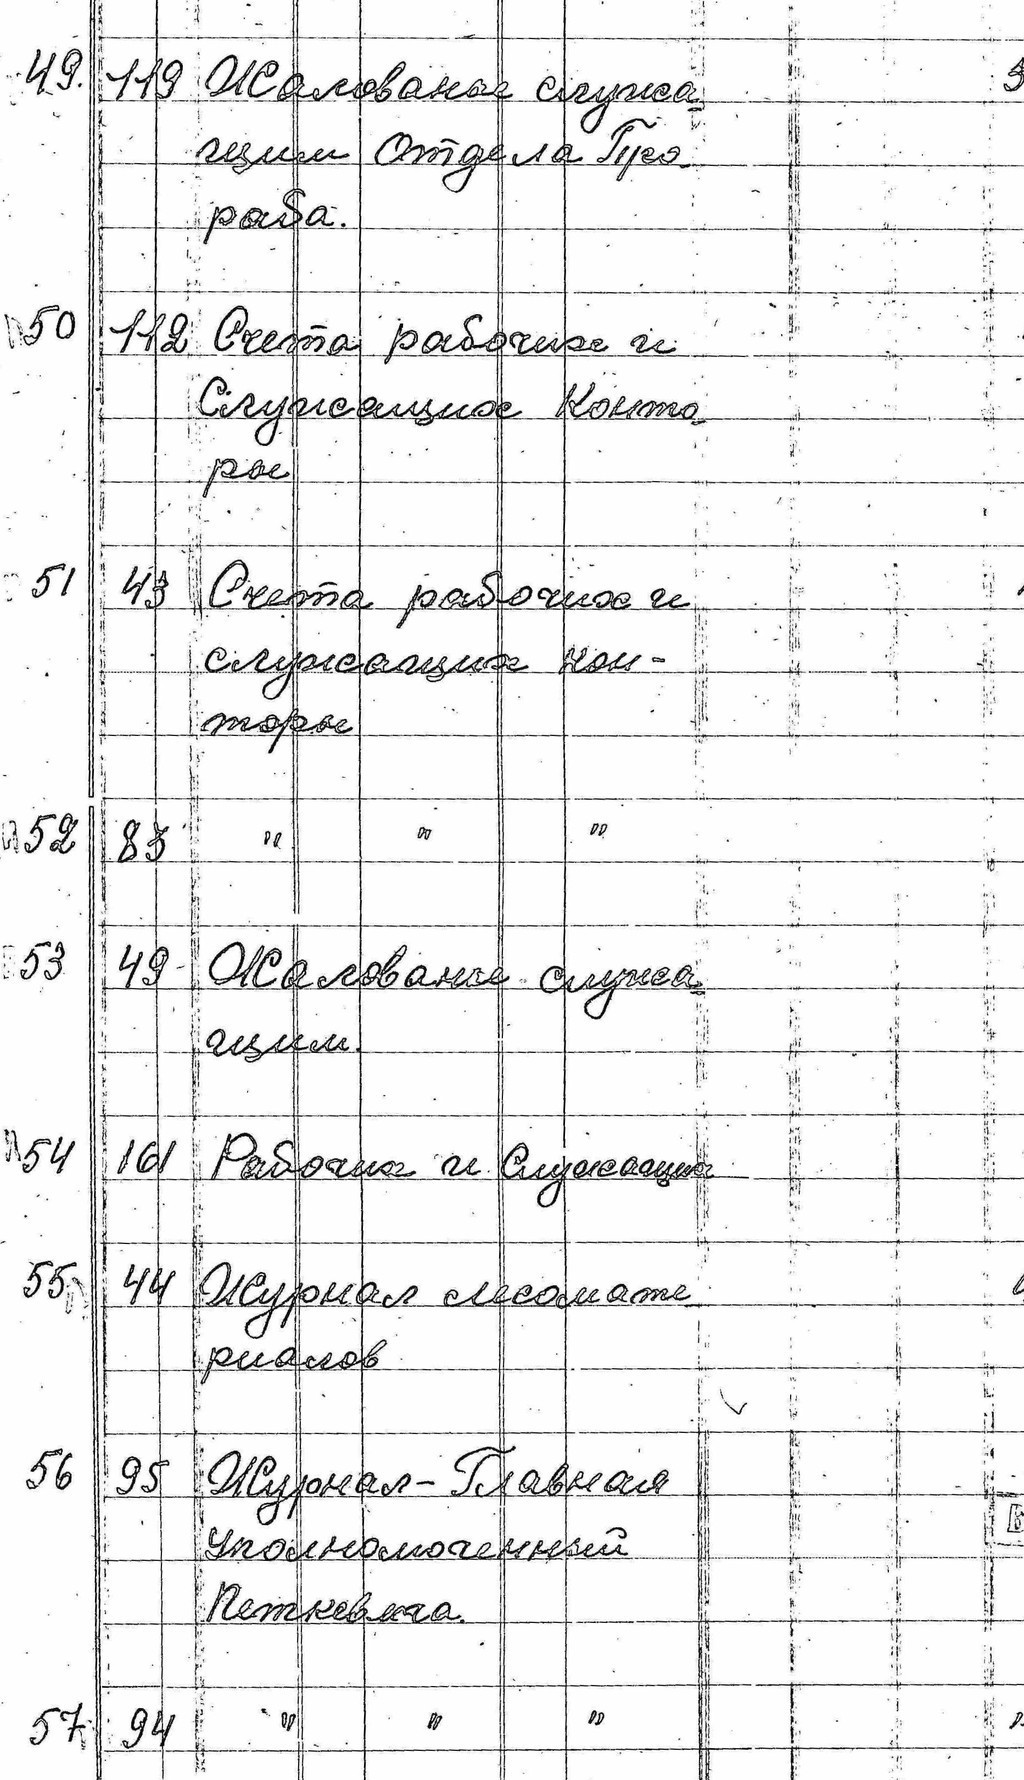 49. 119 Жалованье служа
щим Отдела Про
раба.
50 112 Счета рабочих и
Служащих Конто
ры
51 43 Счета рабочих и
служащих кон-
торы
52 83 " " "
53 49 Жалованье служа
щим.
54 161 Рабочих и Служащих
55 44 Журнал лесомате
риалов
56 95 Журнал-Главная
уполномоченный
Петкевича.
57 94 " " "